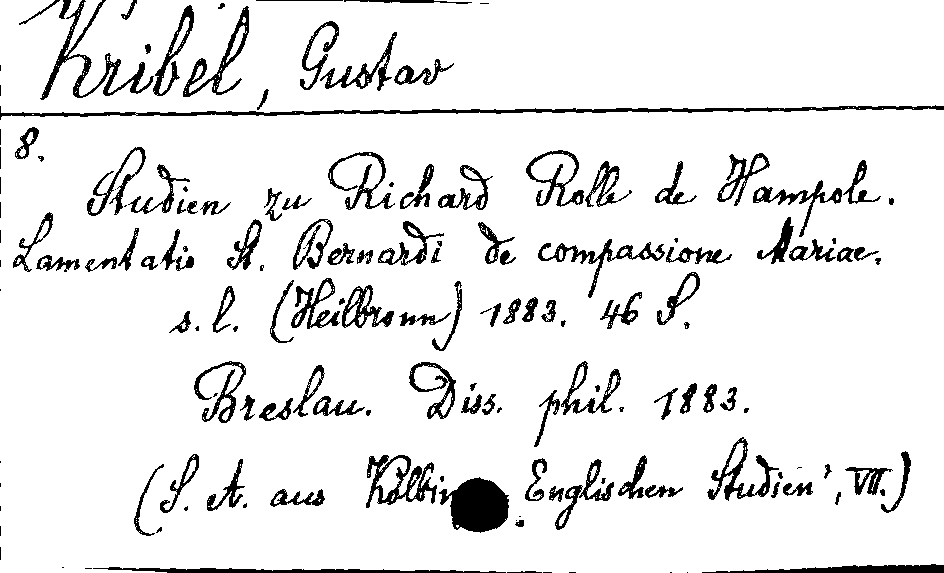 Kribel, Gustav
8.
Studien zu Richard Rolle de Hampole.
Lamentatio St. Bernardi de compassione Mariae.
s. l. (Heilbronn) 1883. 46 S.
Breslau. Diss. phil. 1883.
(S. A. aus Englischen Studien', VII.)